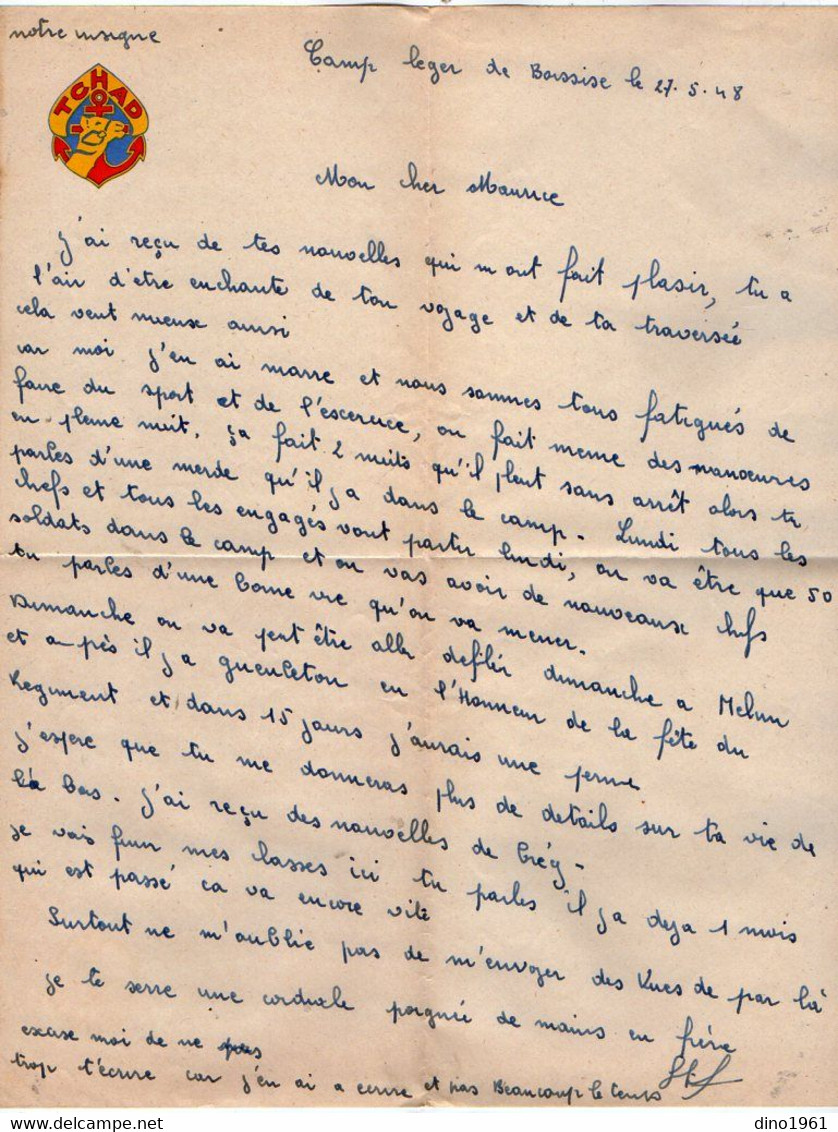 notre insigne
Camp leger de Boissise le 27.5.48
TCHAD
Mon cher Maurice
J'ai reçu de tes nouvelles qui m'ont fait plaisir, tu a
l'air d'être enchante de ton voyage et de ta traversée
cela vent mieux ainsi
car moi j'en ai marre et nous sommes tous fatigués de
faire du sport et de l'escercice, on fait meme des manœuvres
en pleine nuit, ça fait 2 nuits qu'il pleut sans arrêt alors tu
parles d'une merde qu'il ja dans le camp - Lundi tous les
chefs et tous les engagés vont partir lundi, on va être que 50
soldats dans le camp et on vas avoir de nouveaux chefs
tu parles d'une bonne vie qu'on va mener.
Dimanche on va peut être aller defiler dimanche a Melun
et après il ja gueuleton en l'Honneur de la fête du
Regiment et dans 15 jours j'aurais une perme
j'espere que tu me donneras plus de details sur ta vie de
là bas. J'ai reçu des nouvelles de Crécy -
je vais finir mes lasses ici tu parles il ja deja 1 mois
qui est passé ca va encore vite
Surtout ne m'oublie pas de m'envoyer des Vues de par là
je te serre une cordiale poignée de mains en frère
excuse moi de ne pas
trop t'écrire car j'en ai a ecrire et pas Beaucoup le temps
dino1961